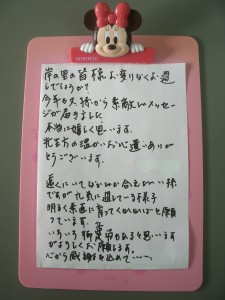 岸の里の皆様お変りなくお過
しでしょうか?
今年も父様から素敵なメッセー
ジが届きました。
本当に嬉しく思います。
先生方の温かいお心遣いありが
とうございます。
遠くにいてなかなか会えない
ですが元気に過している様子
明るく素直に育ってくれればと願
っています。
いろいろ 有ると思います
がよろしくお願いします。
心から感謝を込めて……